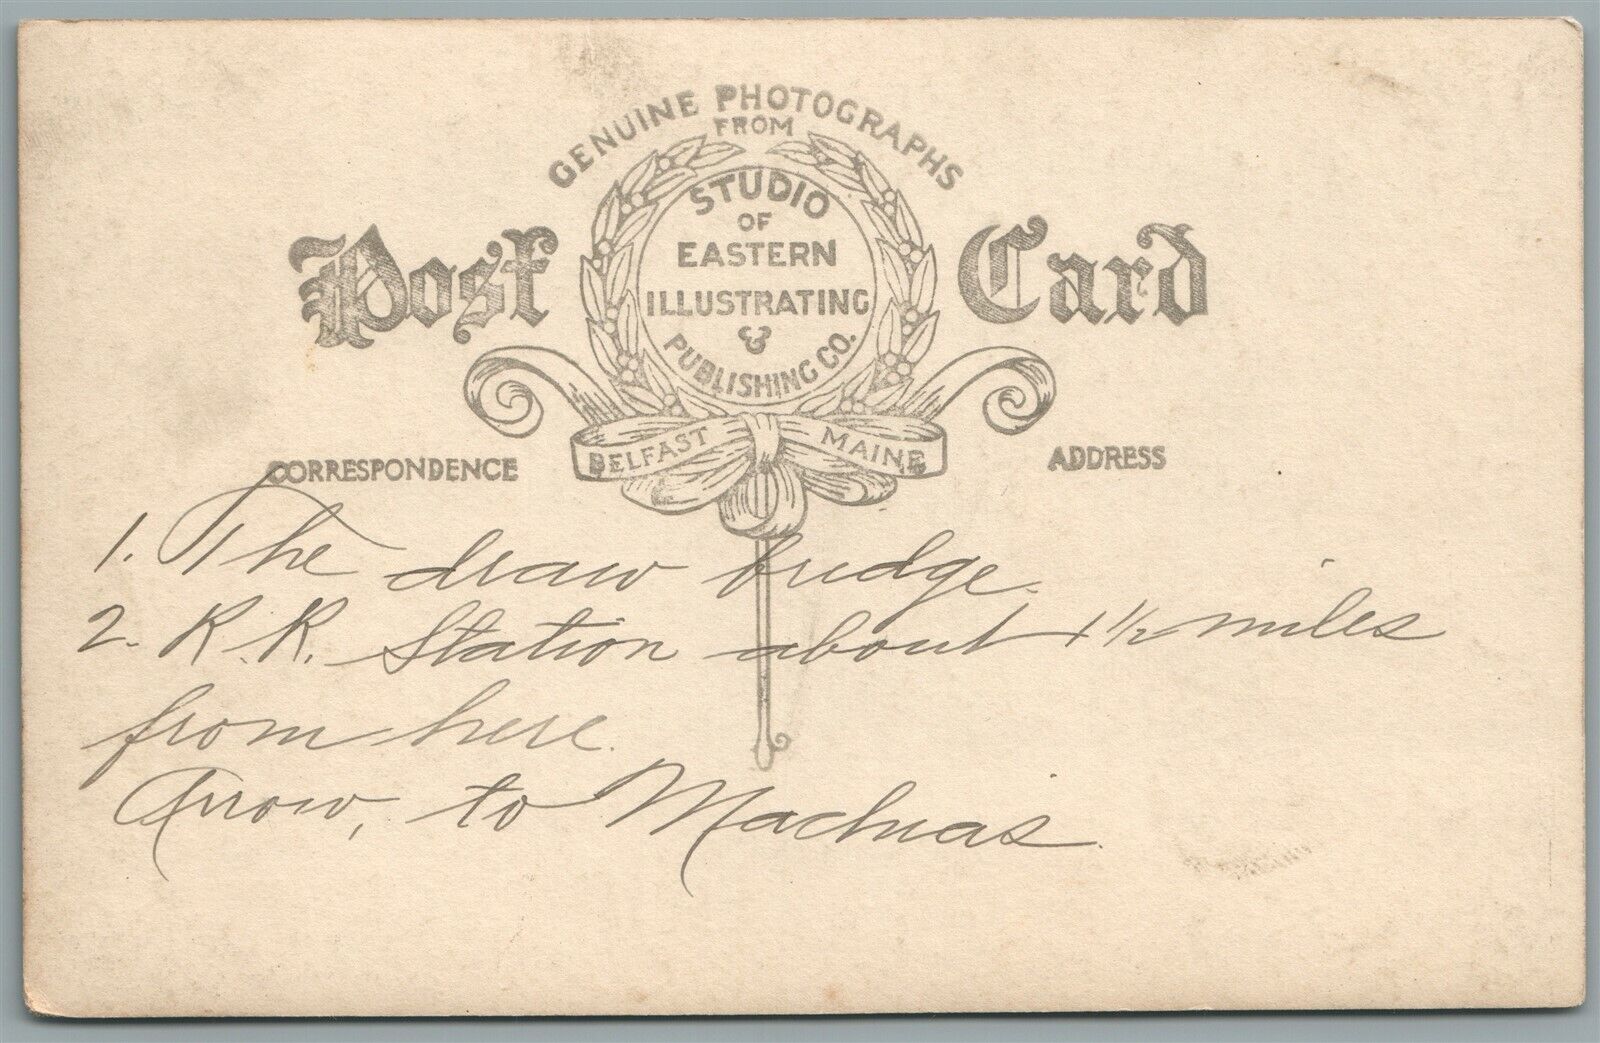 GENUINE PHOTOGRAPHS
FROM
STUDIO
OF
EASTERN
ILLUSTRATING
&
PUBLISHING CO.
Post Card
BELFAST MAINE
CORRESPONDENCE
ADDRESS
1. The draw bridge.
2. R.R. Station about 1 1/2 miles
from here.
Arrow, to Machias.